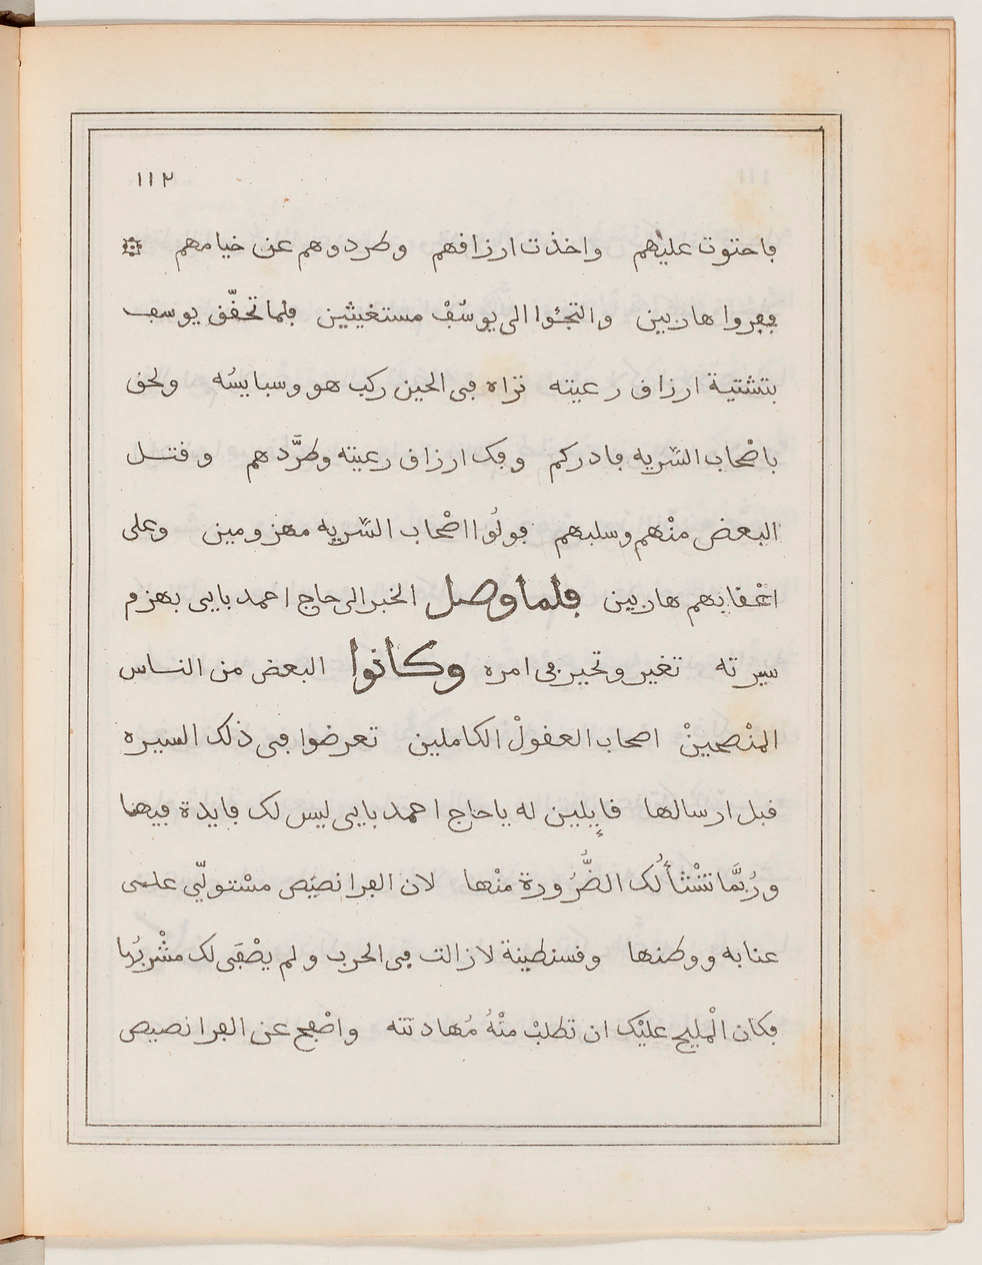 ١١٢
فاحتوت عليهم واخذت ارزاقهم وطردوهم عن خيامهم
ففروا هاربين والتجئوا الى يوسُفْ مستغيثين فلما تحقّق يوسف
بتشتية ارزاق رعيته تراه فى الحين ركب هو وسبايسُه ولحق
باصْحاب السّريه فادركم وفك ارزاق رعيته وطرَّدهم وقتل
البعض منْهم وسلبهم فولُوا اصْحاب السّريه مهزومين وعلى
اعْقابهم هاربين فلما وصل الخبر الى حاج احمد بايى بهزم
سيرته تغير وتحير فى امره وكانوا البعض من الناس
المنْصفينْ اصحاب العقولْ الكاملين تعرضوا فى ذلك السيره
قبل ارسالها قايلين له ياحاج احمد بايى ليس لك فايدة فيها
ورُبَّما تنْشَأُ لُك الضُّرُورة منْها لان الفرانصيَص مسْتولّي على
عنابه ووطنها وقسنطينة لازالت فى الحرب ولم يصْفَى لك مشْربُها
فكان الْمليح عليْك ان تطلبْ منْهُ مُهادنته واصْفح عن الفرانصيص